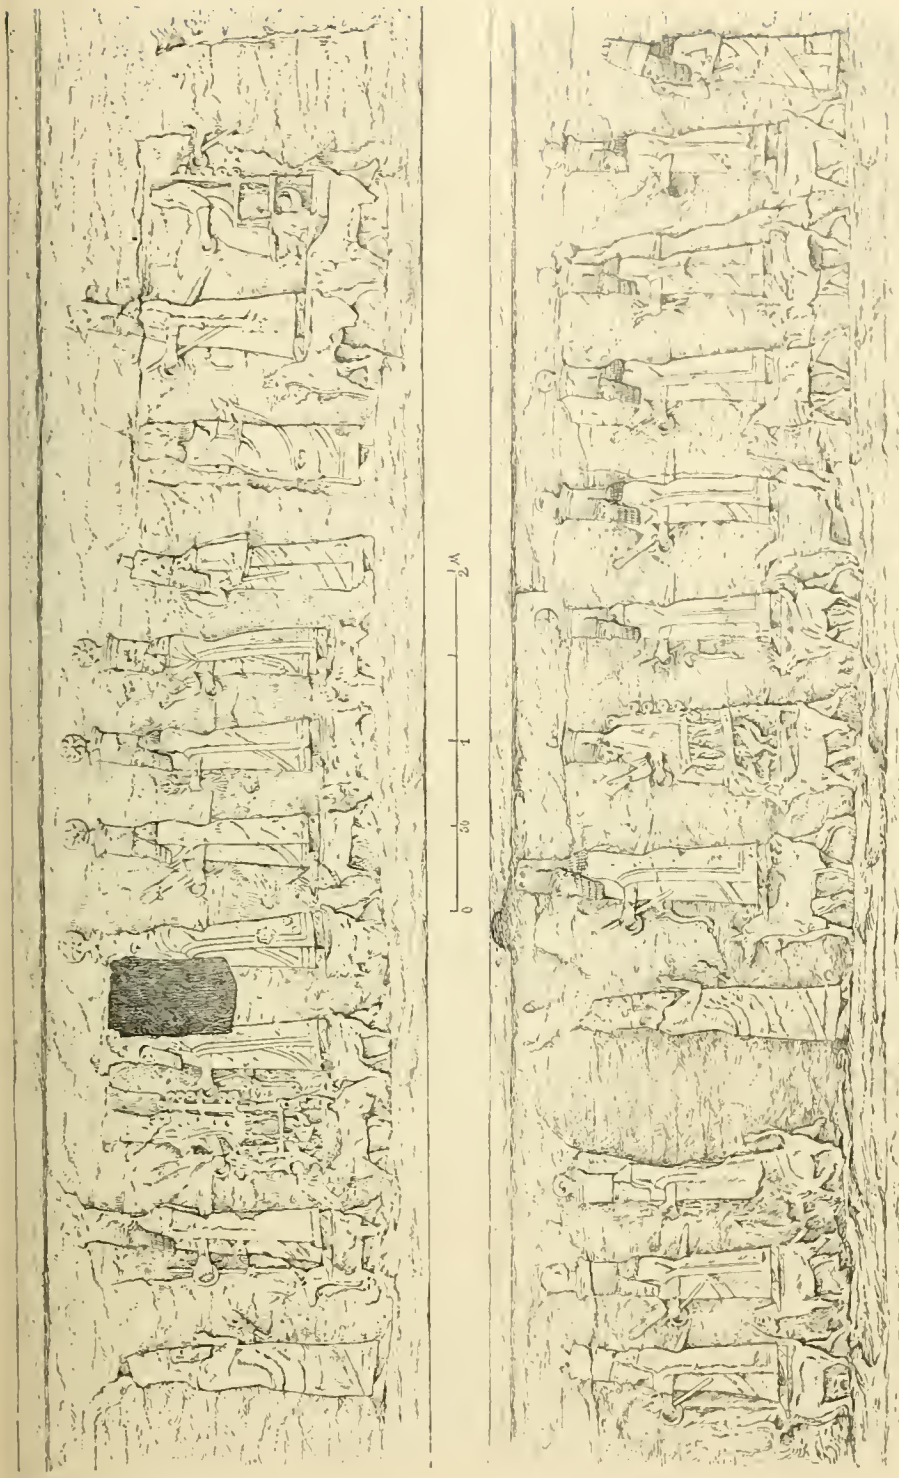 0 50 1 2 M